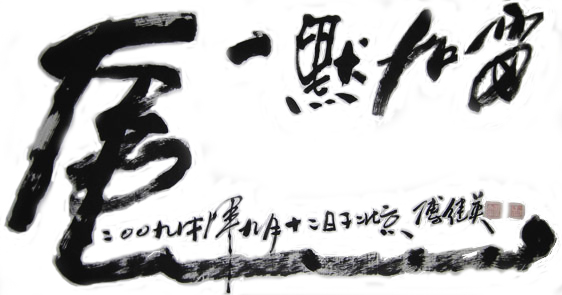 一默如雷
虎
二00九年九月十二日于北京 傅 英